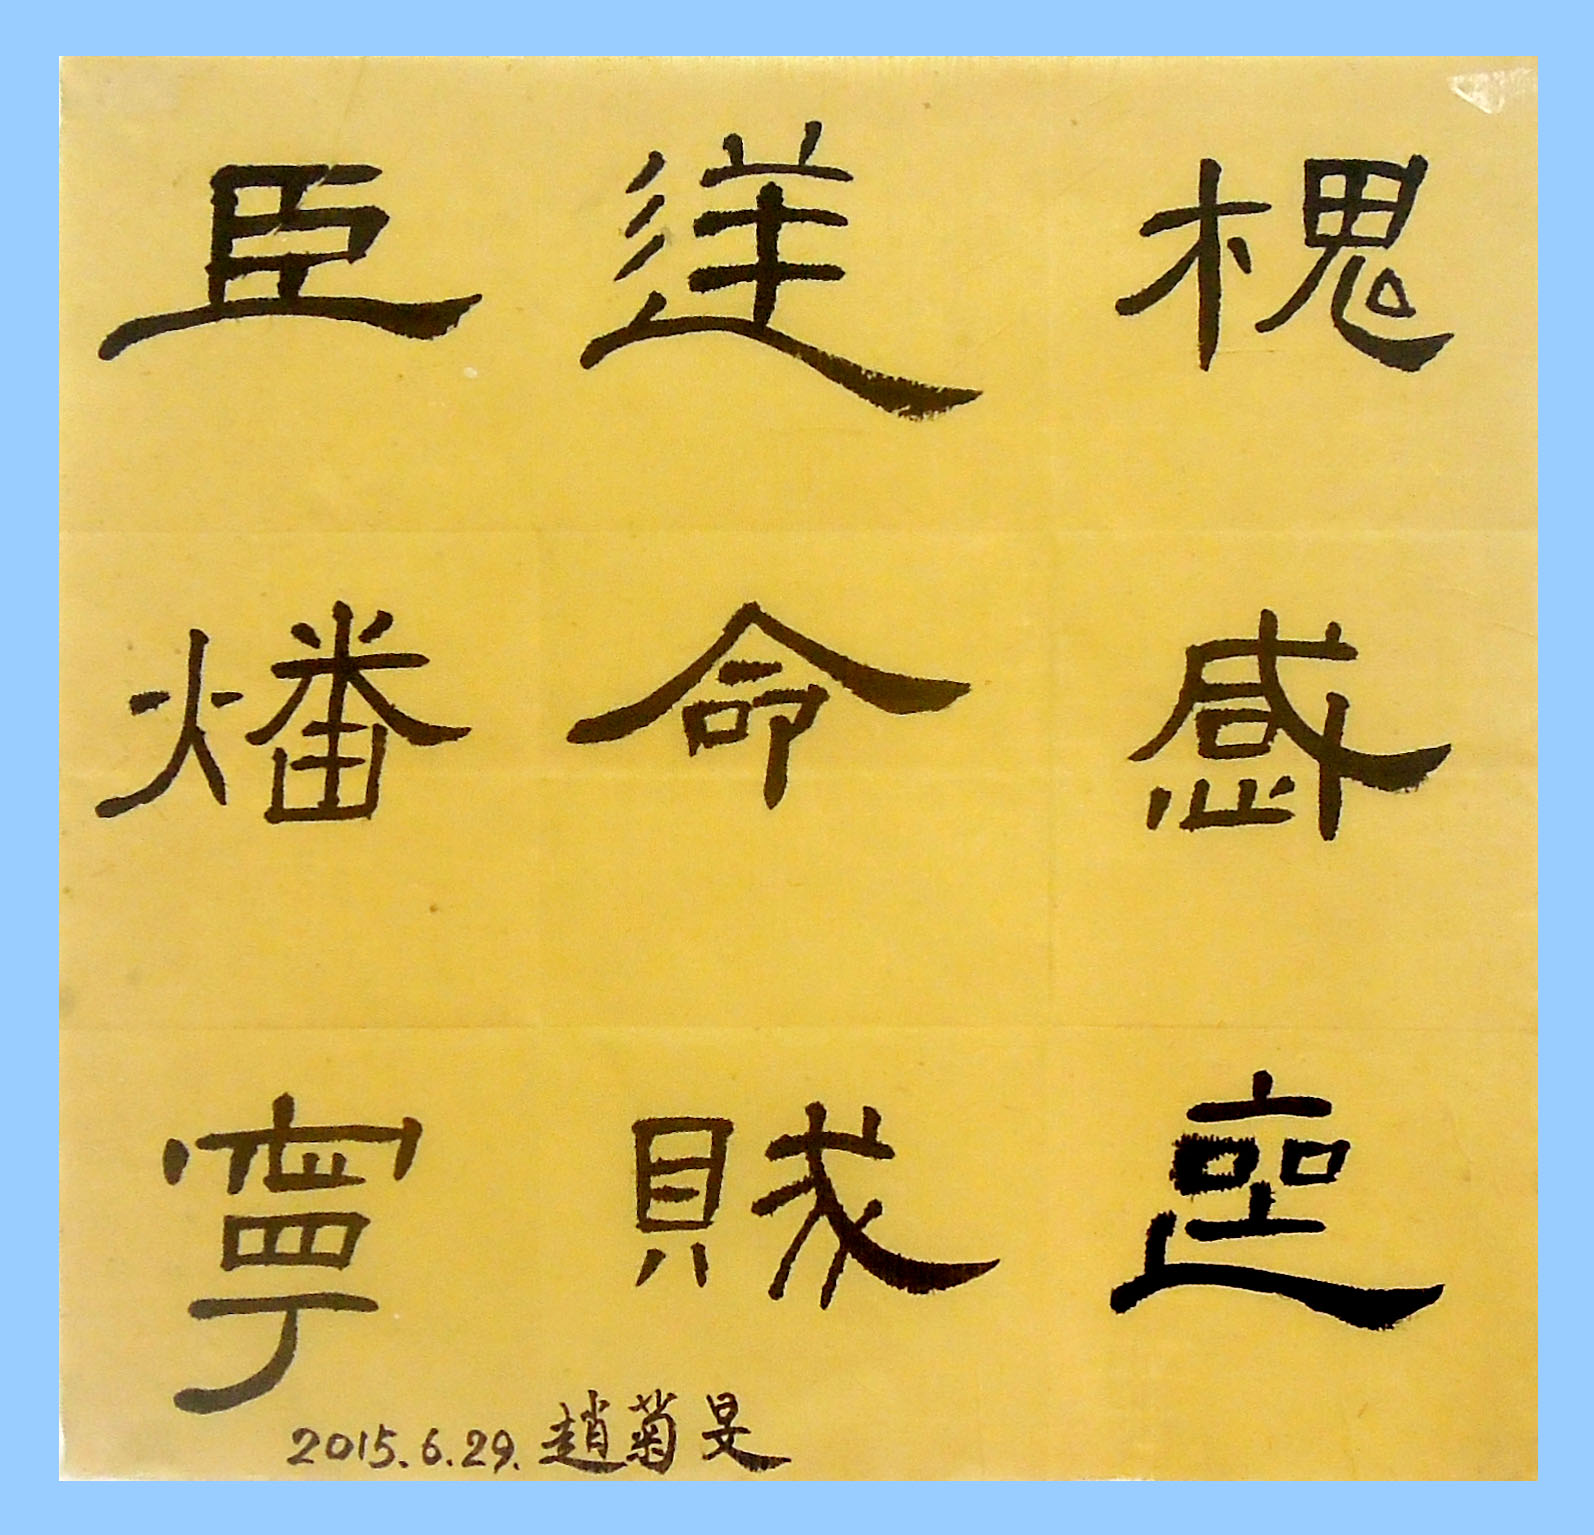 槐感
命賊
臣燔寧
2015.6.29. 趙菊旻